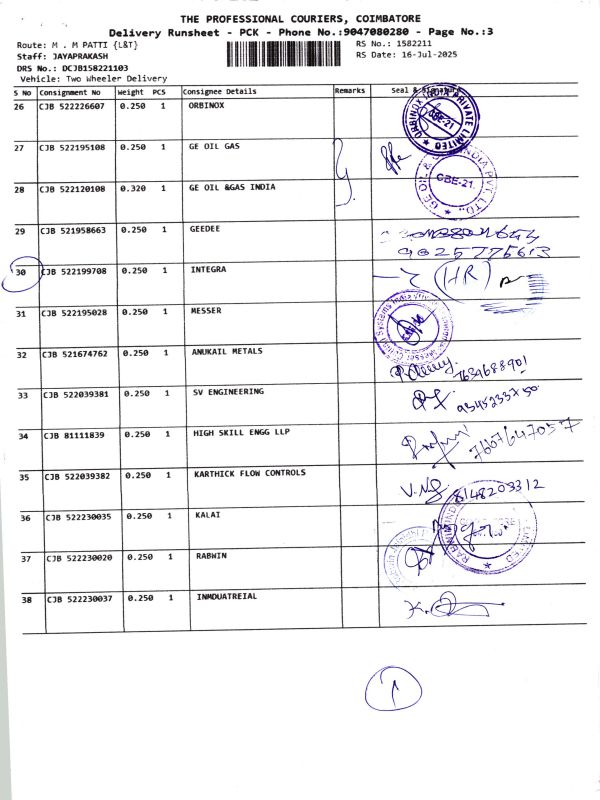 THE PROFESSIONAL COURIERS, COIMBATORE
Delivery Runsheet - PCK - Phone No.:9047080280 - Page No.:3
Route: M . M PATTI {L&T}
RS No.: 1582211
Staff: JAYAPRAKASH
RS Date: 16-Jul-2025
DRS No.: DCJB158221103
Vehicle: Two Wheeler Delivery
S No Consignment No Weight PCS Consignee Details Remarks Seal &
26 CJB 522226607 0.250 1 ORBINOX
ORBINOX INDIA PRIVATE LIMITED
CBE-21
27 CJB 522195108 0.250 1 GE OIL GAS
28 CJB 522120108 0.320 1 GE OIL &GAS INDIA
GE OIL & INDIA PVT. LTD.,
CBE-21.
29 CJB 521958663 0.250 1 GEEDEE
9025775613
30 CJB 522199708 0.250 1 INTEGRA
(HR)
31 CJB 522195028 0.250 1 MESSER
32 CJB 521674762 0.250 1 ANUKAIL METALS
7634688901
33 CJB 522039381 0.250 1 SV ENGINEERING
9345233750
34 CJB 81111839 0.250 1 HIGH SKILL ENGG LLP
7667647057
35 CJB 522039382 0.250 1 KARTHICK FLOW CONTROLS
8148203312
36 CJB 522230035 0.250 1 KALAI
37 CJB 522230020 0.250 1 RABWIN
38 CJB 522230037 0.250 1 INMDUATREIAL
1